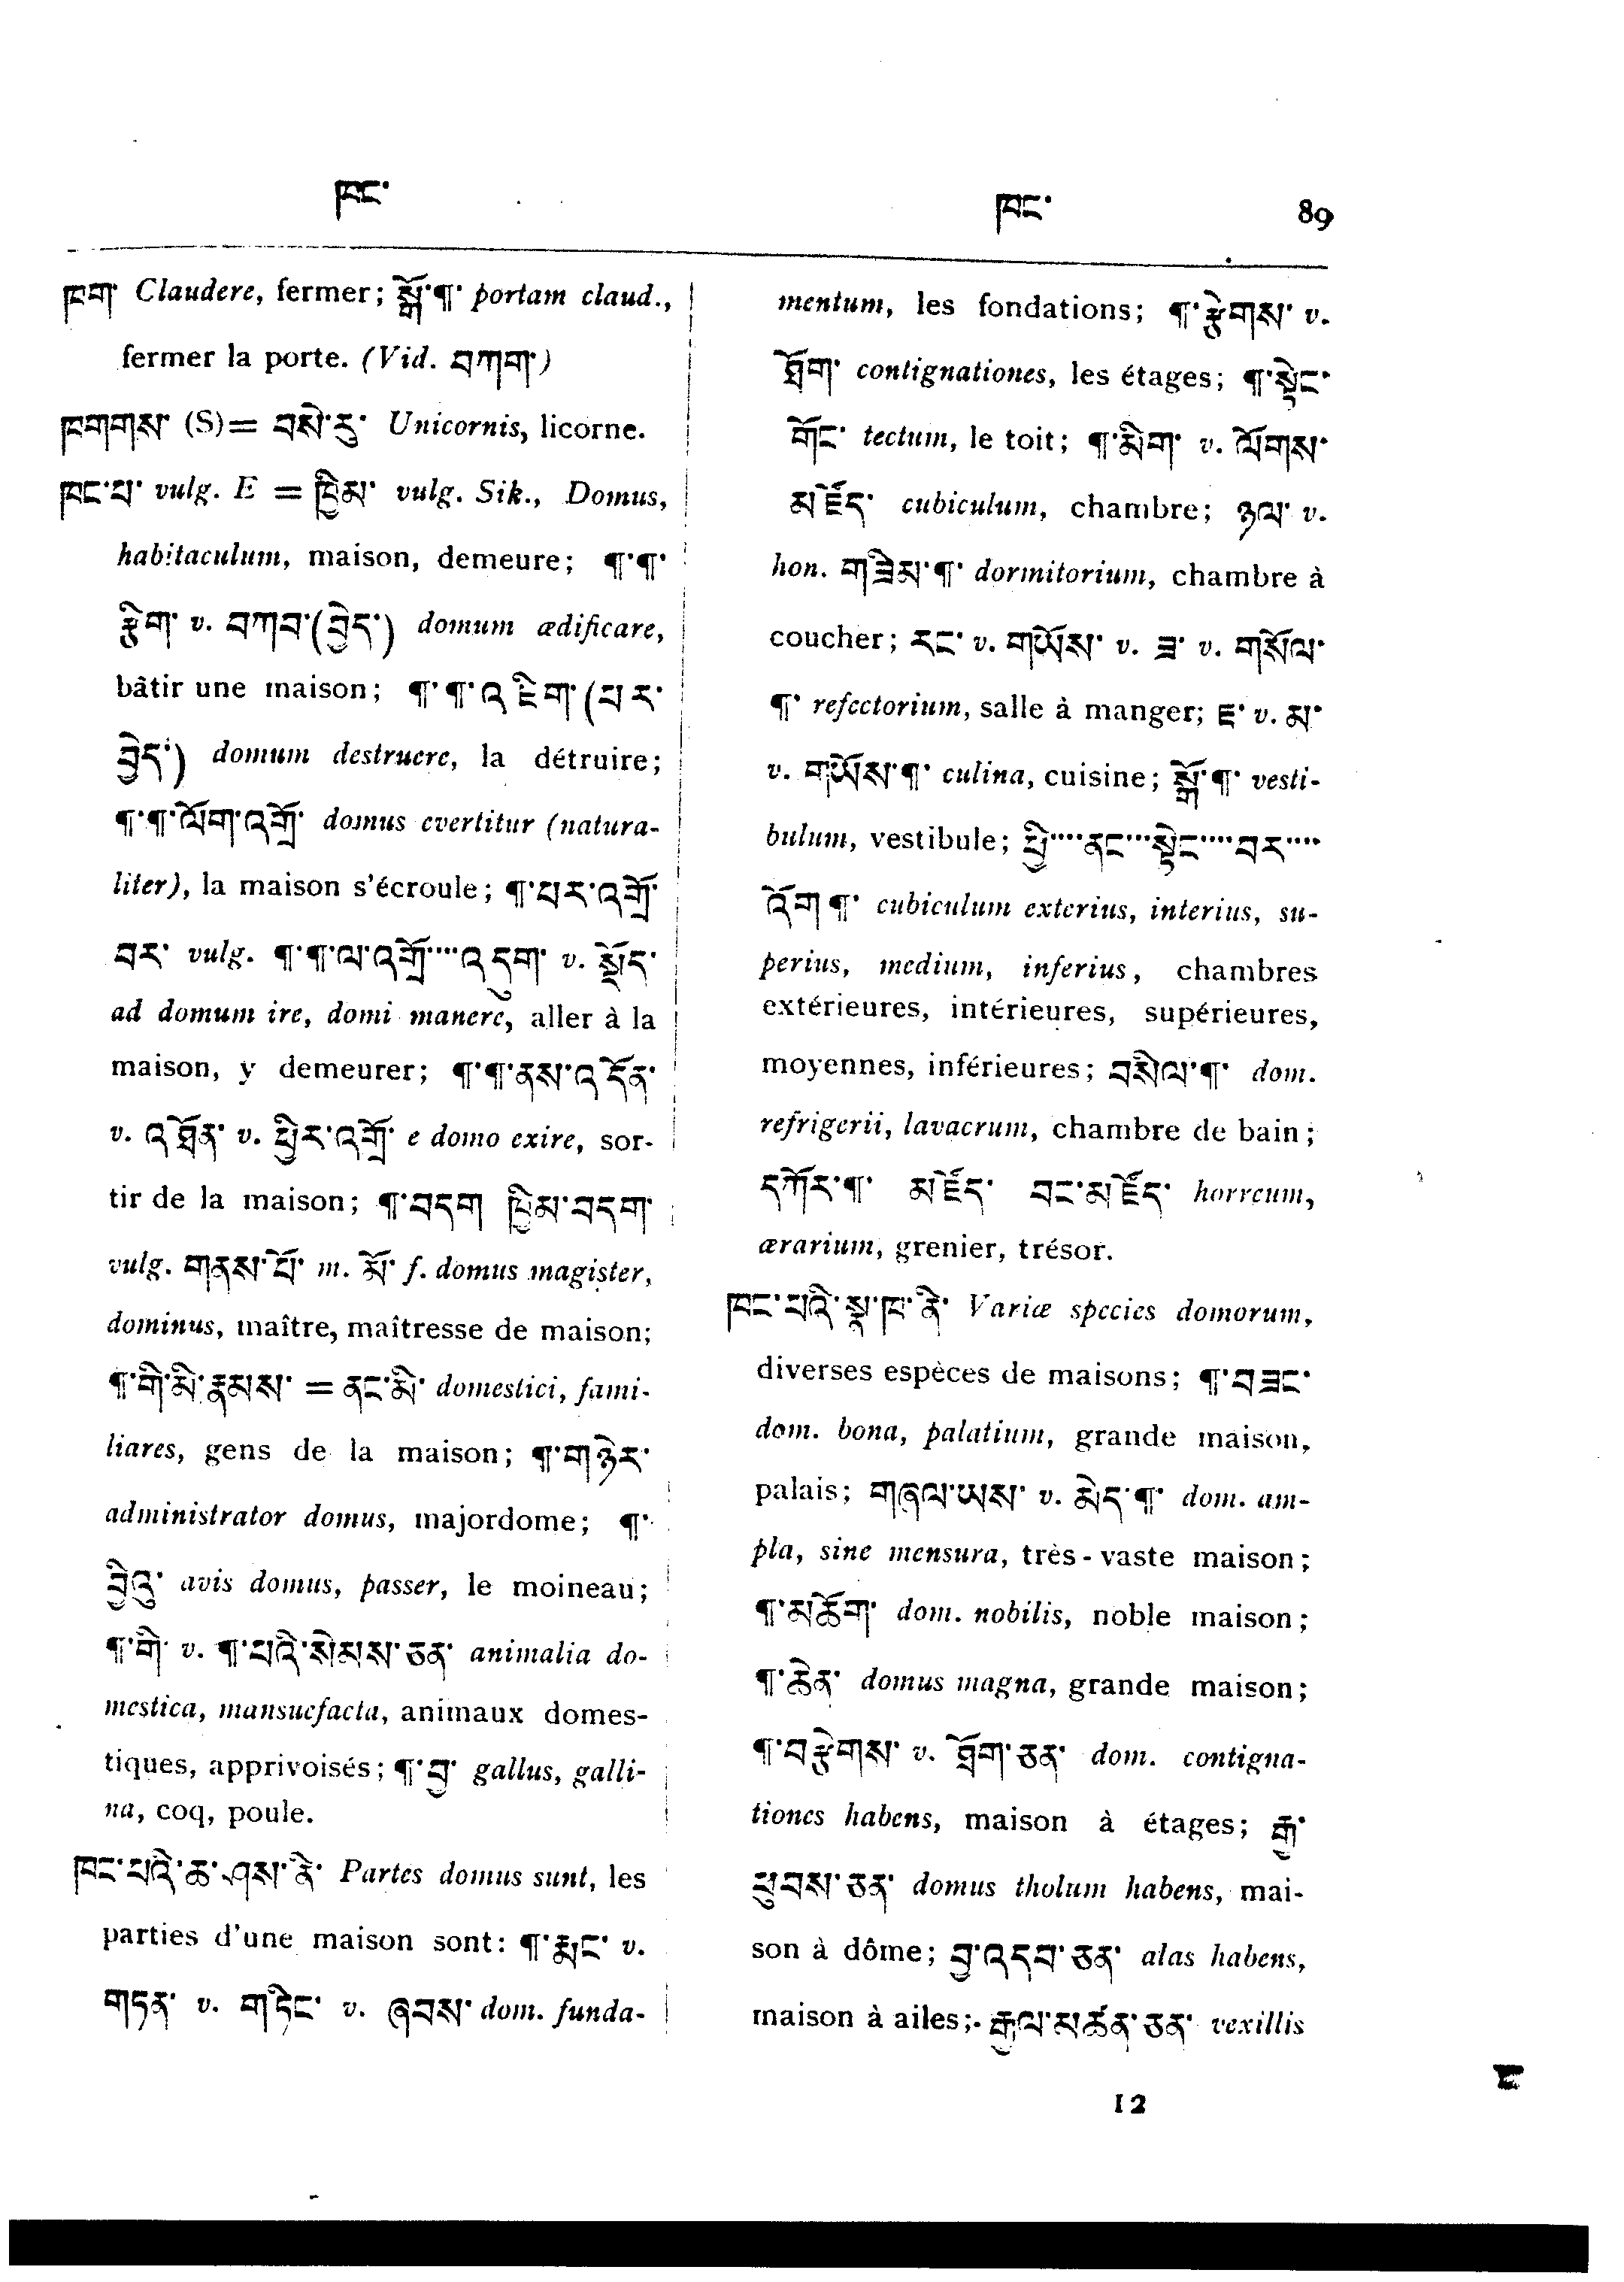 ཁང་ ཁང་ 89
ཁག་ Claudere, fermer; སྒོ་¶་ portam claud.,
fermer la porte. (Vid. བཀག་)
ཁགགས་ (S)= བསེ་རུ་ Unicornis, licorne.
ཁང་པ་ vulg. E = ཁྱིམ་ vulg. Sik., Domus,
habitaculum, maison, demeure; ¶་¶་
རྩིག་ v. བཀབ་(བྱེད་) domum ædificare,
bâtir une maison; ¶་¶་འཇིག་(པར་
བྱེད་) domum destruere, la détruire;
¶་¶་ལོག་འགྲོ་ domus evertitur (natura-
liter), la maison s'écroule; ¶་པར་འགྲོ་
བར་ vulg. ¶་¶་ལ་འགྲོ་···འདུག་ v. སྡོད་
ad domum ire, domi manere, aller à la
maison, y demeurer; ¶་¶་ནས་འདོན་
v. འཐོན་ v. ཕྱིར་འགྲོ་ e domo exire, sor-
tir de la maison; ¶་བདག ཁྱིམ་བདག་
vulg. གནས་པོ་ m. མོ་ f. domus magister,
dominus, maître, maîtresse de maison;
¶་གི་མི་རྣམས་ = ནང་མི་ domestici, fami-
liares, gens de la maison; ¶་གཉེར་
administrator domus, majordome; ¶་
བྱིའུ་ avis domus, passer, le moineau;
¶་གི་ v. ¶་པའི་སེམས་ཅན་ animalia do-
mestica, mansuefacta, animaux domes-
tiques, apprivoisés; ¶་བྱ་ gallus, galli-
na, coq, poule.
ཁང་པའི་ཆ་ཤས་ནི་ Partes domus sunt, les
parties d'une maison sont: ¶་རྨང་ v.
གདན་ v. གདིང་ v. ཞབས་ dom. funda-
mentum, les fondations; ¶་རྩེགས་ v.
ཐོག་ contignationes, les étages; ¶་སྟེང་
གོང་ tectum, le toit; ¶་མིག་ v. ལོགས་
མཛོད་ cubiculum, chambre; ཉལ་ v.
hon. གཟིམ་¶་ dormitorium, chambre à
coucher; རང་ v. གཡོས་ v. ཟ་ v. གསོལ་
¶་ refectorium, salle à manger; ཇ་ v. མ་
v. གཡོས་¶་ culina, cuisine; སྒོ་¶་ vesti-
bulum, vestibule; ཕྱི་···ནང་···སྟེང་···བར་···
འོག¶་ cubiculum exterius, interius, su-
perius, medium, inferius, chambres
extérieures, intérieures, supérieures,
moyennes, inférieures; བསིལ་¶་ dom.
refrigerii, lavacrum, chambre de bain;
དཀོར་¶་ མཛོད་ བང་མཛོད་ horreum,
ærarium, grenier, trésor.
ཁང་པའི་སྣ་ཁ་ནི་ Variæ species domorum,
diverses espèces de maisons; ¶་བཟང་
dom. bona, palatium, grande maison,
palais; གཞལ་ཡས་ v. མེད་¶་ dom. am-
pla, sine mensura, très-vaste maison;
¶་མཆོག་ dom. nobilis, noble maison;
¶་ཆེན་ domus magna, grande maison;
¶་བརྩེགས་ v. ཐོག་ཅན་ dom. contigna-
tiones habens, maison à étages; རྒྱ་
ཕུབས་ཅན་ domus tholum habens, mai-
son à dôme; བྱ་འདབ་ཅན་ alas habens,
maison à ailes; རྒྱལ་མཚན་ཅན་ vexillis
12